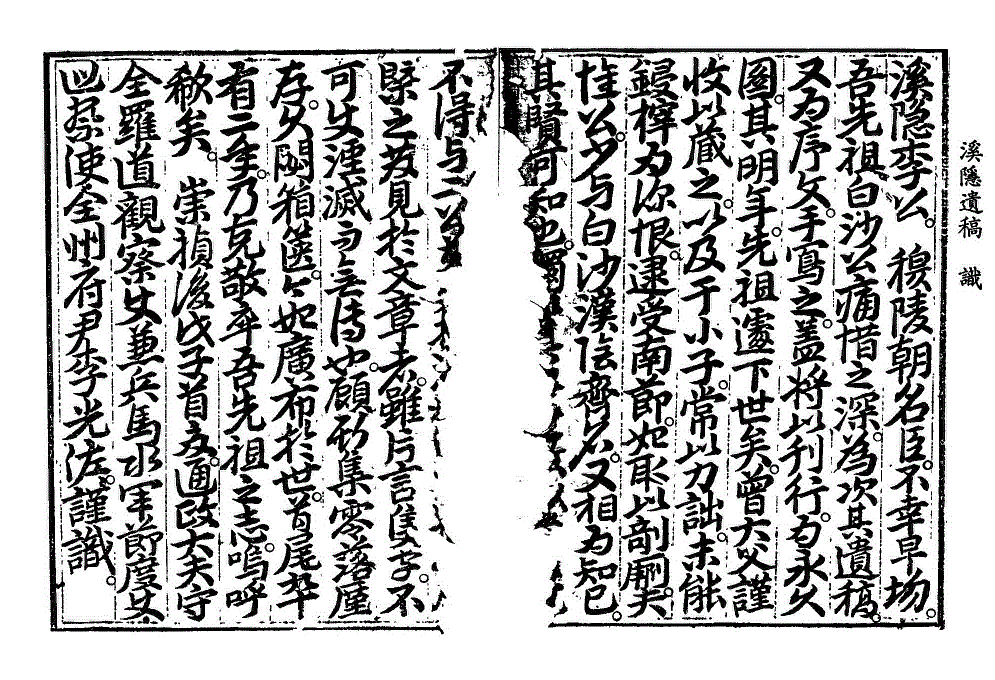 溪隱遺稿 識
溪隱李公。穆陵朝名臣。不幸早歾。
吾先祖白沙公痛惜之深。為次其遺稿。
又为序文。手寫之。盖将以刊行。为永久
圖。其明年。先祖遽下世矣。曾大父謹
收以藏之。以及于小子。常以力詘。未能
鋟梓为深恨。逮受南節。始取以剞劂。夫
惟公。少与白沙漢陰齊名。又相为知己。
其賢可知也。
不得与二公
槩之英見於文章者。雖片言隻字。不
可使湮滅而無傳也。顧所集零落。廑
存。久閟箱篋。今始廣布於世。首尾卒
有二年。乃克敬卒吾先祖之志。嗚呼
欷矣。崇禎後戊子首夏。通政大夫守
全羅道觀察使兼兵馬水軍節度使
巡察使全州府尹李光佐。謹識。